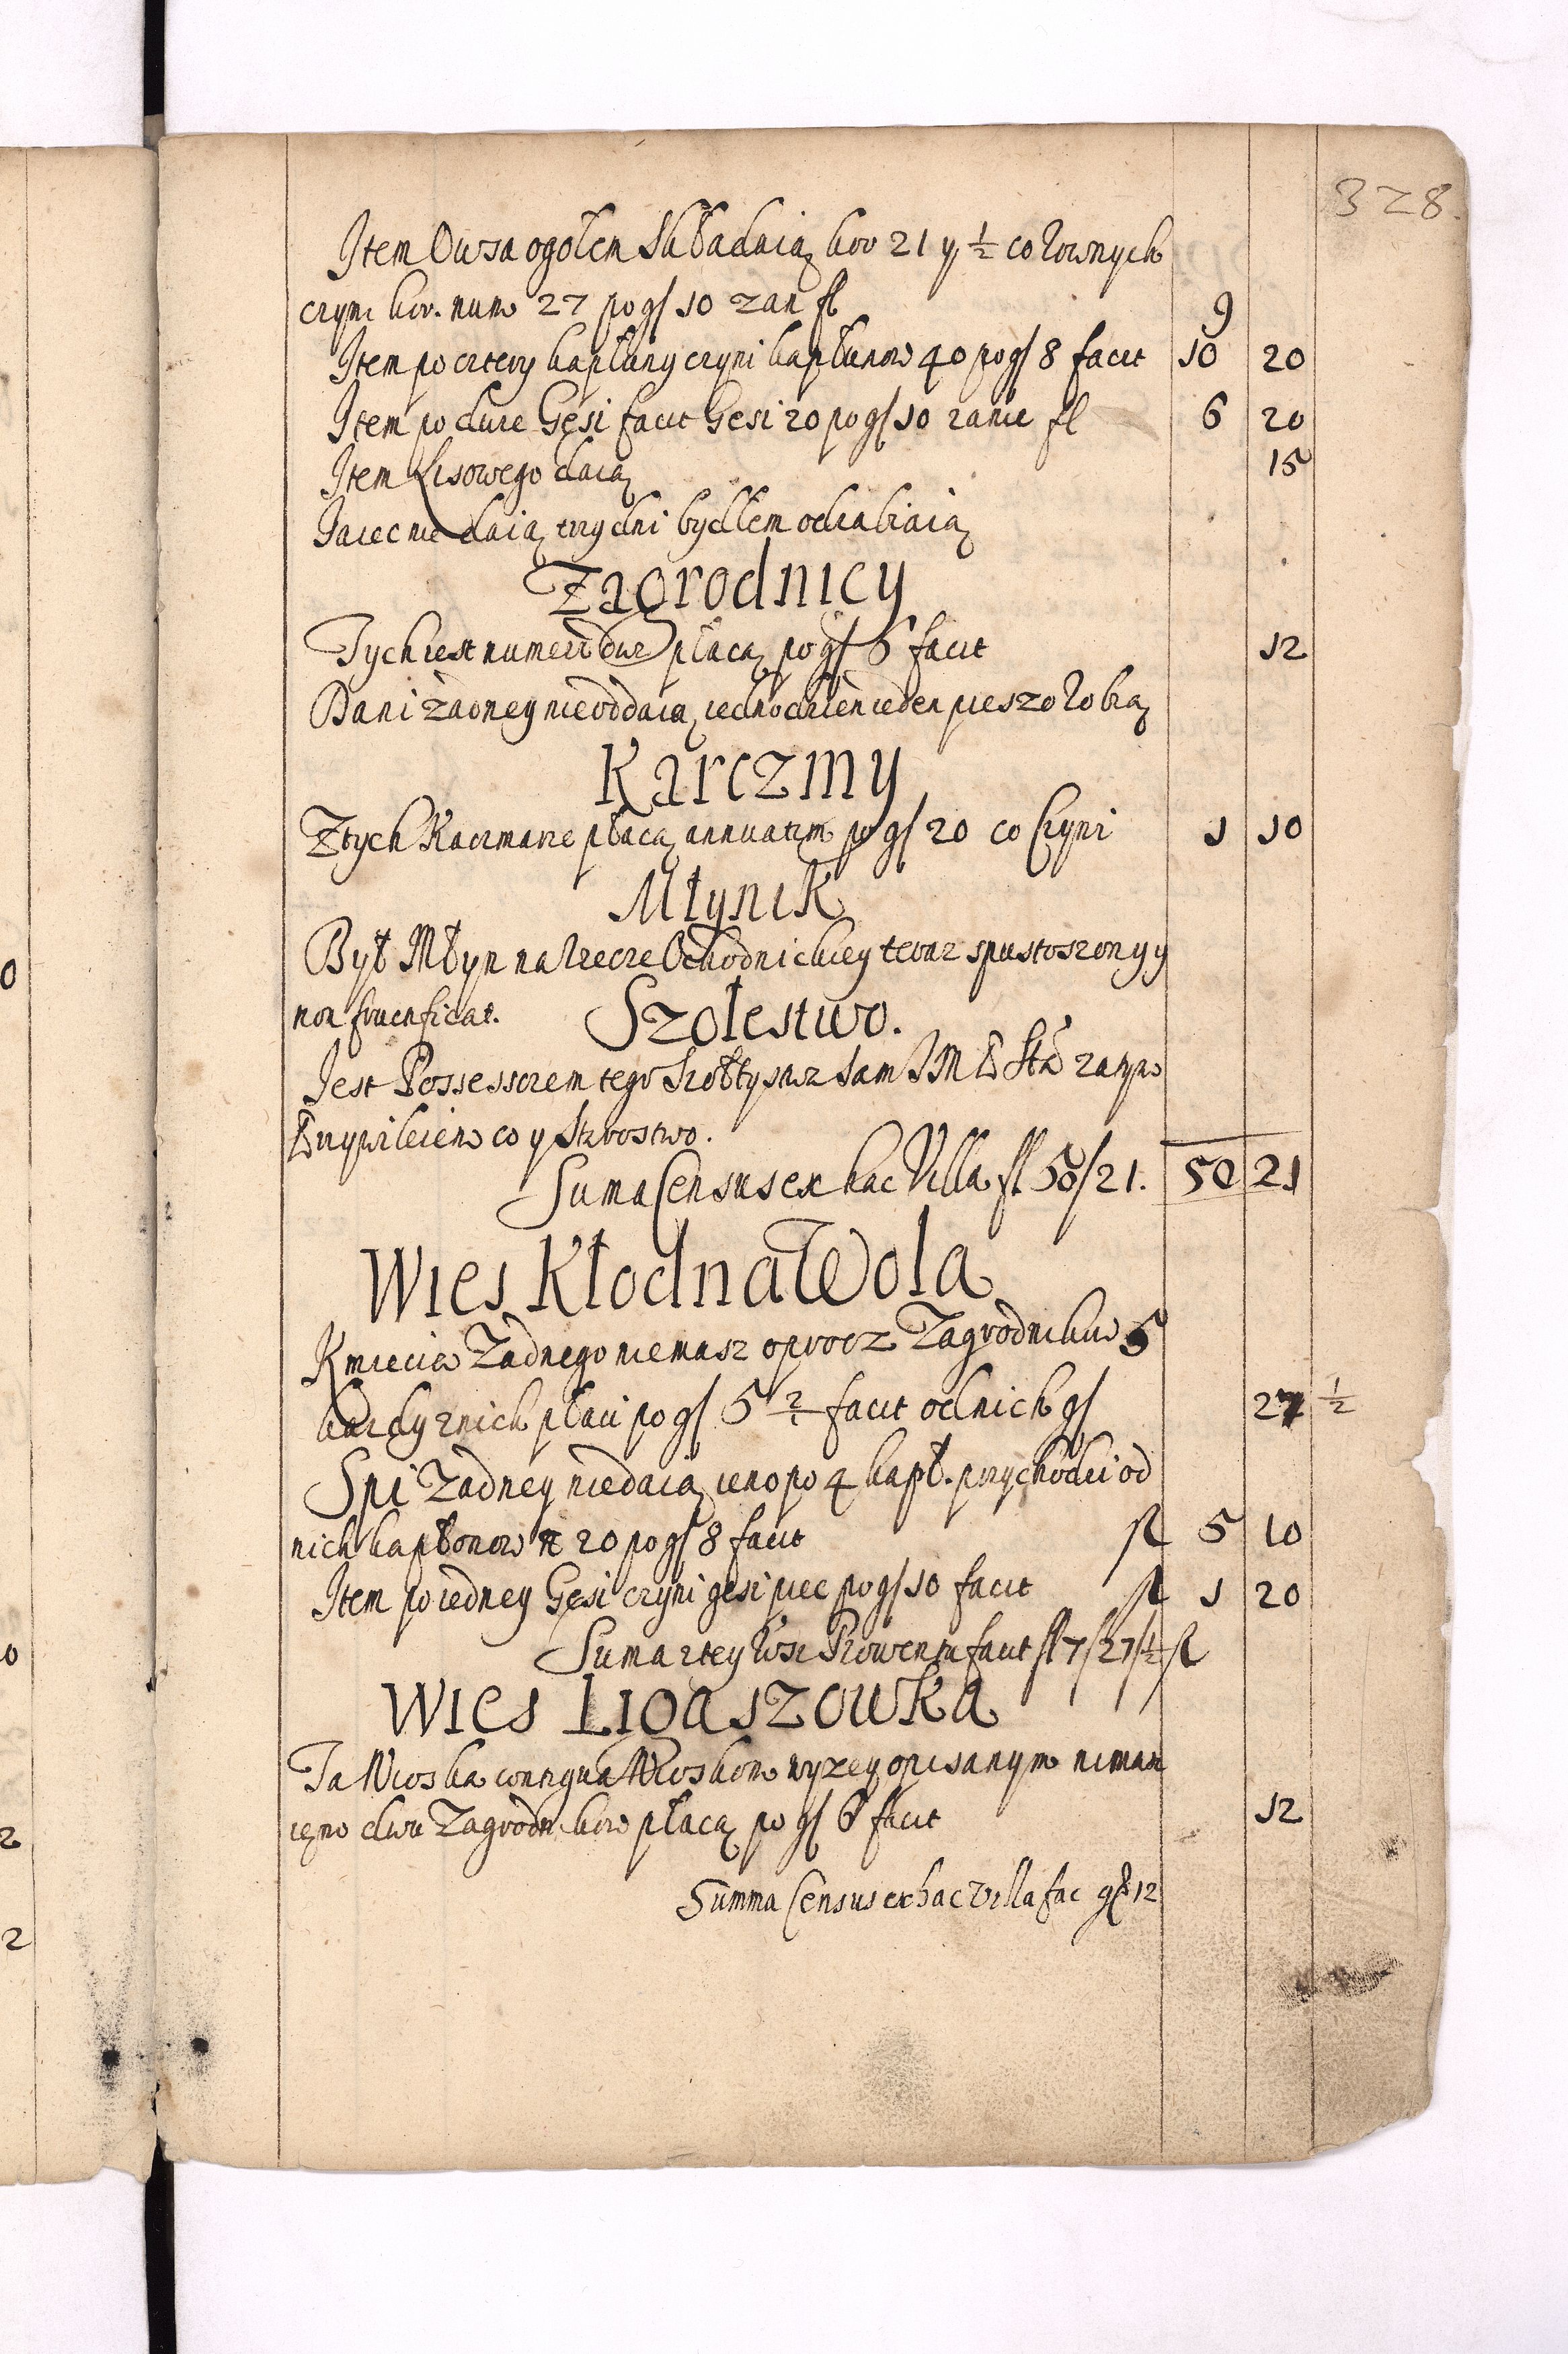 328.
Item Owsa ogołem składaią kor 21 y ½ co Rownych
czyni kor. num 27 po gſ 10 zan fl 9
Item po cztery kapłuny czyni kapłunow 40 po gſ 8 facit 10 20
Item po dwie Gęsi facit Gęsi 20 po gſ 10 zanie fl 6 20
Item Lisowego daią 15
Jaiec nie daią trzy dni bydłem odrabiaią
Zagrodnicy
Tych iest numero dwa płacą po gſ 6 facit 12
Dani żadney nie oddaią iedno dzien ieden pieszo Robią
Karczmy
Z tych Karcmarze płacą annuatim po gſ 20 co Czyni 1 10
Młynik
Był Młyn na Rzecze Ochodnickiey teraz spustoszony y
non fructificat. Szolestwo.
Jest Possessorem tego Szołtystwa sam JM P Sta za
Przywileiem co y Starostwo.
Suma Census ex hac Villa fl 50/21. 50 21
Wies Kłodna Wola
Kmiecia Zadnego niemasz oprocz Zagrodnikow 5
kazdy z nich płaci po gſ 5 ½ facit od nich gſ 27 ½
Spi Zadney niedaią ieno po 4 kapł. przychodzi od
nich kapłonow n 20 po gſ 8 facit fl 5 10
Item po iedney Gęsi czyni gęsi piec po gſ 10 facit fl 1 20
Suma z tey Wsi Prowentu facit fl 7/27/½
Wies Ligaszowka
Ta Wioska contigua Wioskom wyzey opisanym nimasz
ieno dwu Zagrodnikow płacą po gſ 6 facit 12
Summa Census ex hac Villa fac gſ 12